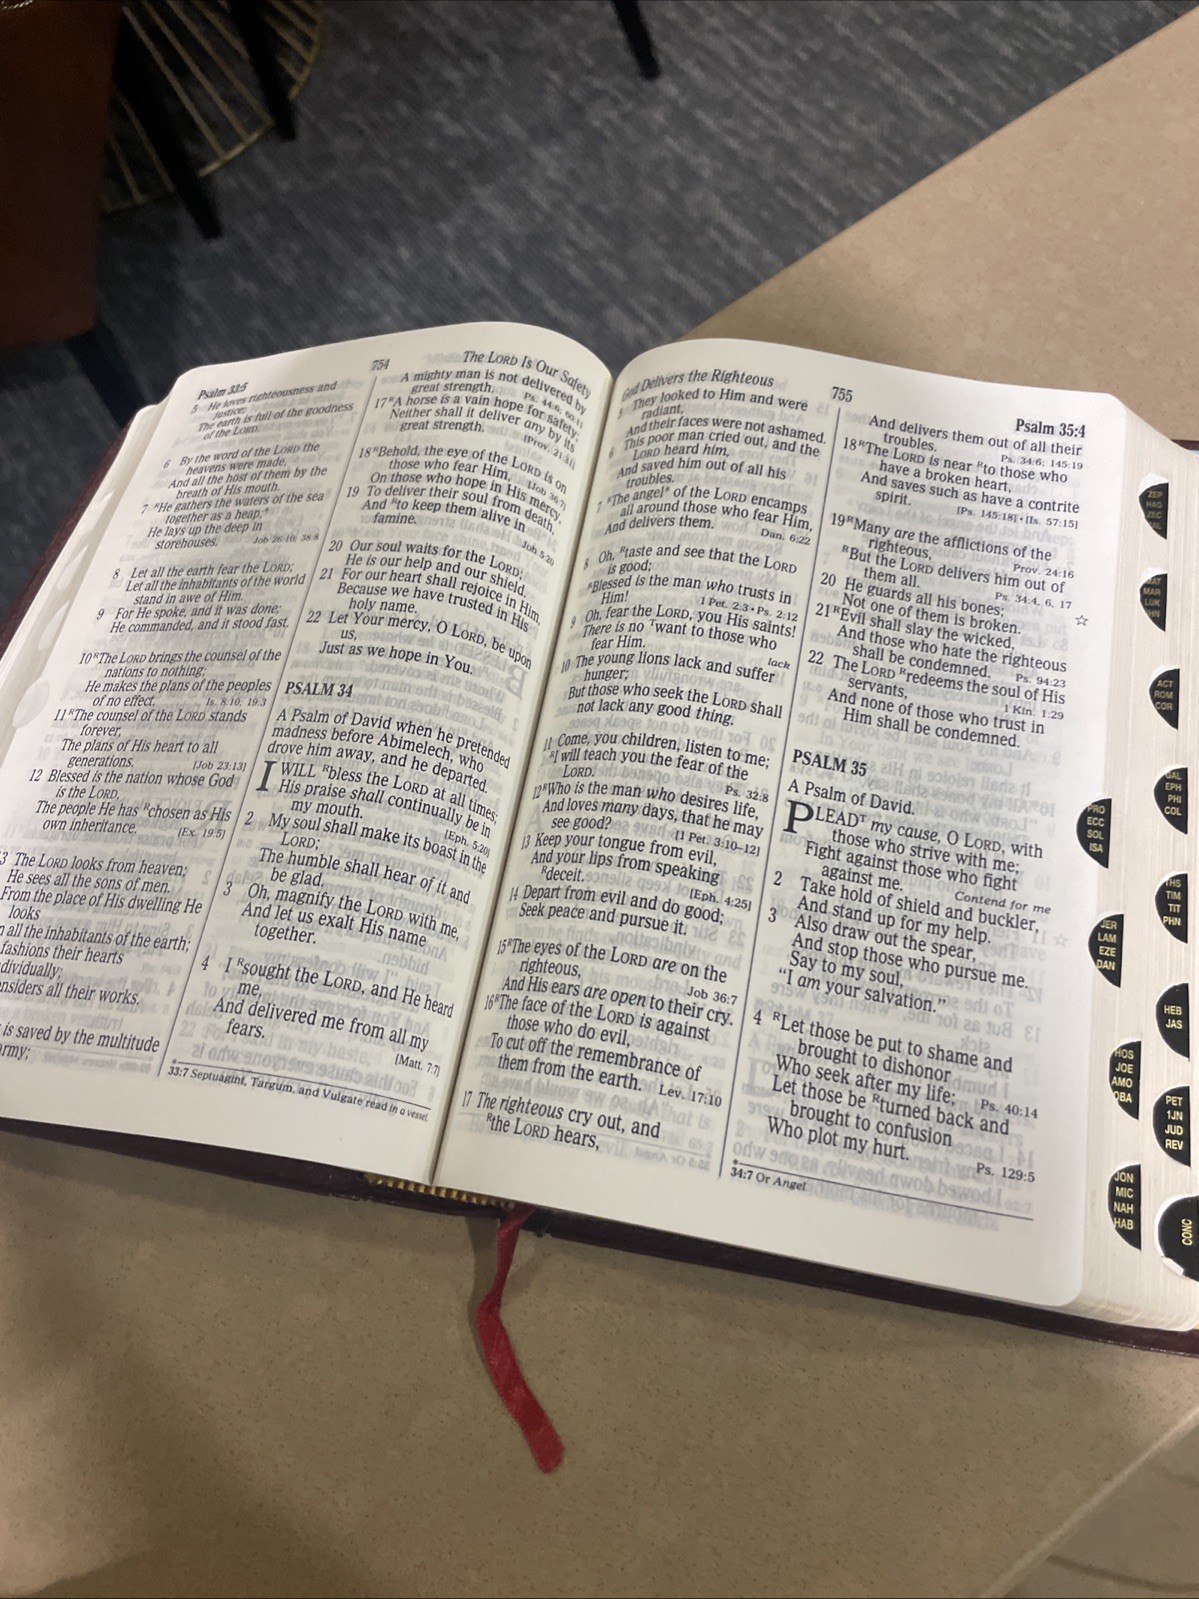 Psalm 33:5
754
The LORD Is Our Safety
5 He loves righteousness and
justice;
The earth is full of the goodness
of the LORD.
6 By the word of the LORD the
heavens were made,
And all the host of them by the
breath of His mouth.
7 ᴿHe gathers the waters of the sea
together as a heap;*
He lays up the deep in
storehouses. Job 26:10; 38:8
8 Let all the earth fear the LORD;
Let all the inhabitants of the world
stand in awe of Him.
9 For He spoke, and it was done;
He commanded, and it stood fast.
10 ᴿThe LORD brings the counsel of the
nations to nothing;
He makes the plans of the peoples
of no effect. Is. 8:10; 19:3
11 ᴿThe counsel of the LORD stands
forever,
The plans of His heart to all
generations. [Job 23:13]
12 Blessed is the nation whose God
is the LORD,
The people He has ᴿchosen as His
own inheritance. [Ex. 19:5]
3 The LORD looks from heaven;
He sees all the sons of men.
From the place of His dwelling He
looks
n all the inhabitants of the earth;
fashions their hearts
dividually;
nsiders all their works.
is saved by the multitude
rmy;
A mighty man is not delivered by
great strength. Ps. 44:6; 60:11
17 ᴿA horse is a vain hope for safety;
Neither shall it deliver any by its
great strength. [Prov. 21:31]
18 ᴿBehold, the eye of the LORD is on
those who fear Him, [Job 36:7]
On those who hope in His mercy,
19 To deliver their soul from death,
And ᴿto keep them alive in
famine. Job 5:20
20 Our soul waits for the LORD;
He is our help and our shield.
21 For our heart shall rejoice in Him,
Because we have trusted in His
holy name.
22 Let Your mercy, O LORD, be upon
us,
Just as we hope in You.
PSALM 34
A Psalm of David when he pretended
madness before Abimelech, who
drove him away, and he departed.
I WILL ᴿbless the LORD at all times;
His praise shall continually be in
my mouth. [Eph. 5:20]
2 My soul shall make its boast in the
LORD;
The humble shall hear of it and
be glad.
3 Oh, magnify the LORD with me,
And let us exalt His name
together.
4 I ᴿsought the LORD, and He heard
me,
And delivered me from all my
fears. [Matt. 7:7]
*
33:7 Septuagint, Targum, and Vulgate read in a vessel
God Delivers the Righteous
755
Psalm 35:4
5 They looked to Him and were
radiant,
And their faces were not ashamed.
6 This poor man cried out, and the
LORD heard him,
And saved him out of all his
troubles.
7 ᴿThe angel* of the LORD encamps
all around those who fear Him,
And delivers them. Dan. 6:22
8 Oh, ᴿtaste and see that the LORD
is good;
ᴿBlessed is the man who trusts in
Him! 1 Pet. 2:3 • Ps. 2:12
9 Oh, fear the LORD, you His saints!
There is no ᵀwant to those who
fear Him. lack
10 The young lions lack and suffer
hunger;
But those who seek the LORD shall
not lack any good thing.
11 Come, you children, listen to me;
ᴿI will teach you the fear of the
LORD. Ps. 32:8
12 ᴿWho is the man who desires life,
And loves many days, that he may
see good? [1 Pet. 3:10–12]
13 Keep your tongue from evil,
And your lips from speaking
ᴿdeceit. [Eph. 4:25]
14 Depart from evil and do good;
Seek peace and pursue it.
15 ᴿThe eyes of the LORD are on the
righteous,
And His ears are open to their cry. Job 36:7
16 ᴿThe face of the LORD is against
those who do evil,
To cut off the remembrance of
them from the earth. Lev. 17:10
17 The righteous cry out, and
ᴿthe LORD hears,
And delivers them out of all their
troubles. Ps. 34:6; 145:19
18 ᴿThe LORD is near ᴿto those who
have a broken heart,
And saves such as have a contrite
spirit. [Ps. 145:18] • [Is. 57:15]
19 ᴿMany are the afflictions of the
righteous, Prov. 24:16
ᴿBut the LORD delivers him out of
them all. Ps. 34:4, 6, 17
20 He guards all his bones;
Not one of them is broken. ☆
21 ᴿEvil shall slay the wicked,
And those who hate the righteous
shall be condemned. Ps. 94:23
22 The LORD ᴿredeems the soul of His
servants, 1 Kin. 1:29
And none of those who trust in
Him shall be condemned.
PSALM 35
A Psalm of David.
PLEADᵀ my cause, O LORD, with
those who strive with me;
Fight against those who fight
against me. Contend for me
2 Take hold of shield and buckler,
And stand up for my help.
3 Also draw out the spear,
And stop those who pursue me.
Say to my soul,
“I am your salvation.”
4 ᴿLet those be put to shame and
brought to dishonor
Who seek after my life; Ps. 40:14
Let those be ᴿturned back and
brought to confusion
Who plot my hurt. Ps. 129:5
*
34:7 Or Angel
PRO
ECC
SOL
ISA
JER
LAM
EZE
DAN
HOS
JOE
AMO
OBA
JON
MIC
NAH
HAB
ZEP
HAG
ZEC
MAL
MAT
MAR
LUK
JHN
ACT
ROM
COR
GAL
EPH
PHI
COL
THS
TIM
TIT
PHN
HEB
JAS
PET
1JN
JUD
REV
CONC